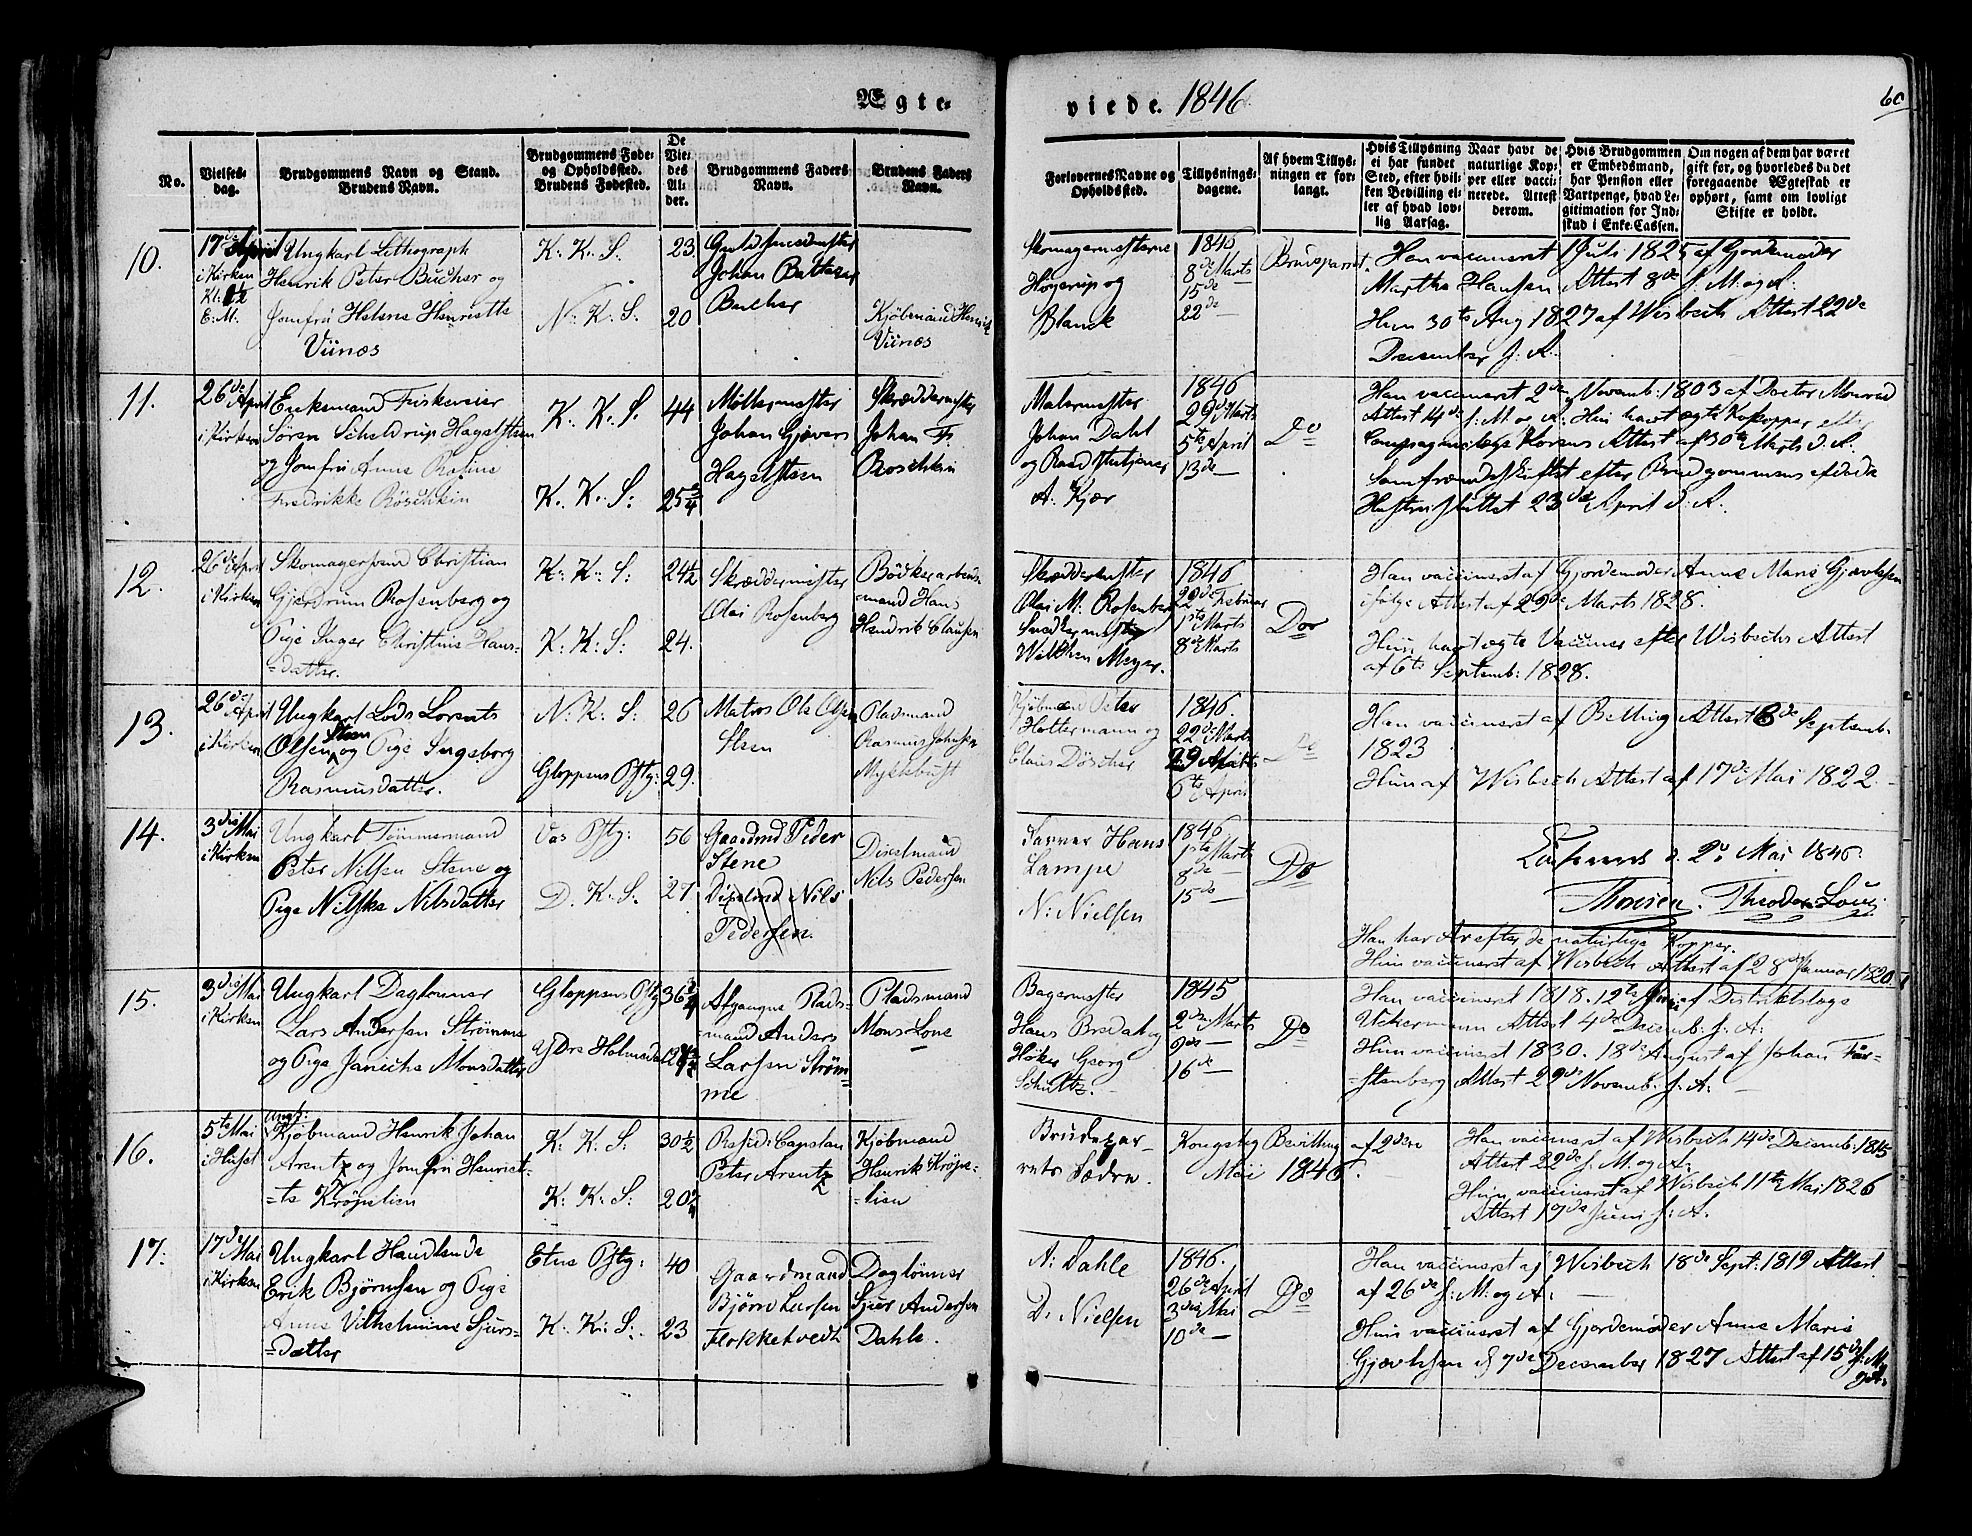 Ægte-
viede. 1846
60
No.
Vielses-
dag.
Brudgommens Navn og Stand.
Brudens Navn.
Brudgommens Føde-
og Opholdssted.
Brudens Fødested.
De
Vie-
des
Al-
der.
Brudgommens Faders
Navn.
Brudens Faders
Navn.
Forlovernes Navne og
Opholdssted.
Tillysnings-
dagene.
Af hvem Tillys-
ningen er for-
langt.
Hvis Tillysning
ei har fundet
Sted, efter hvil-
ken Bevilling el-
ler af hvad lov-
lig Aarsag.
Naar havt de
naturlige Kop-
per eller vacci-
nerede. Attest
derom.
Hvis Brudgommen
er Embedsmand,
har Pension eller
Vartpenge, hvad Le-
gitimation for Ind-
skud i Enke-Cassen.
Om nogen af dem har været
gift før, og hvorledes da det
foregaaende Ægteskab er
ophørt, samt om lovligt
Skifte er holdt.
10.
17de April
i Kirken
Kl. 1½
E. M.
Ungkarl Lithograph
Henrik Peter Bucher og
Jomfru Helene Henriette
Viinæs
K. K. S.
N. K. S.
23.
20
Guldsmedmester
Johan Baltazar
Bucher
Kjøbmand Henrik
Viinæs
Skomagermesterne
Høyerup og
Blanck
1846
8de Marts
15de
22de —
Brudeparret.
Han vaccineret 1 Juli 1825 af Gjordemoder
Martha Hansen Attest 8de f. M. og A.
Hun 30te Aug 1827 af Wisbech Attest 22de
Decemher f. A.
11.
26de April
i Kirken
Enkemand Fiskeveier
Søren Scheldrup Hagelsteen
og Jomfru Anne Rosine
Fredrikke Röschkin
K. K. S.
K. K. S:
44
25¾
Møllermester
Johan Gjøvers
Hagelsteen
Skræddermester
Johan Fr.
Roschkin
Malermester
Johan Dahl
og Raadstutjener
A. Kjær
1846
29de Marts
5te April
13de —
Do
Han vaccineret 2de Novemb: 1803 af Doctor Monrad
Attest 4de f. M. og A: Hun havt ægte Kokopper efter
Compagnielæge Klovens Attest af 30te Marts d. A.
Samfrændeskiftet efter Brudgommens afdøde
Hustru sluttet 23de April d. A.
12.
26de April
i Kirken
Skomagersvend Christian
Gjerdrum Rosenberg og
Pige Inger Christine Hans-
=datter.
K: K: S:
K: K: S:
24½
24.
Skræddermester
Olai Rosenberg
Bödkerarbeids
=mand Hans
Hendrik Clausen
Skræddermester
Olai M. Rosenberg
Snedkermester
Wilthen Meyer.
1846
22de Februar
1ste Marts
8de Marts
Do
Han vaccineret af Gjordemoder Anne Marie Gjævlesen
ifølge Attest af 29de Marts 1828.
Hun havt ægte Vacciner efter Wisbechs Attest
af 6te Septemb: 1828.
13.
26de April
i Kirken
Ungkarl Lods Lorents
Olsen Steen og Pige Ingeborg
Rasmusdatter.
N: K: S:
Gloppens Pstg:
26
29.
Matros Ole Olsen
Steen
Pladsmand
Rasmus Johnsen
Myklebust
Kjøbmænd Peter
Holtermann og
Claus Döscher
1846
22de Marts
29 Marts
5te April
Do
Han vaccineret af Belling Attest 6de Septemb:
1823
Hun af Wisbech Attest af 17de Mai 1822. -
14.
3die Mai
i Kirken
Ungkarl Tömmermand
Peter Nilsen Stene og
Pige Nilska Nilsdatter
Vos Pstg:
D. K. S.
56
27.
Gaardmd Peder
Stene
Nils
Pedersen.
Nils Pedersen
Hans
Lampe
N: Nielsen
1846
1ste Marts
8de —
15de —
Do
2. Mai 1846:
Monsen. Theodor Louis
Han har Ar efter de naturlige Kopper.
Hun vaccineret af Wisbech Attest af 28de Januar 1820.
15.
3die Mai
i Kirken
Ungkarl Daglønner
Lars Andersen Strömme
og Pige Janiche Monsdatter
Gloppens Pstg
Ytre Holmedal
36¾
Afgangne Plads-
mand Anders
Larsen Ström=
me
Pladsmand
Mons Lone
Bagermester
Hans Bredahl og
Høker Georg
Schultz.
1845
2den Marts
9de —
16de —
Do
Han vaccineret 1818. 12te Juni af Distriktslæge
Uckermann Attest 4de Decemb: f: A:
Hun vaccineret 1830. 18de August af Johan Für-
=stenberg Attest 29de Novemb. f: A:
16.
5te Mai
i Huset
Ungk:
Kjøbmand Henrik Johan
Arentz og Jomfru Henriet-
=te Krøpelien
K: K: S:
K: K: S:
30½
20¾
Resid: Capelan
Peter Arentz
Kjöbmand
Henrik Kröpe=
=lien
Brudepar-
rets Fædre.
Kongelig Bevilling af 2den
Mai 1846.
Han vaccineret af Wisbech 14de Decemb: 1815
Attest 22de f. M. og A:
Hun vaccineret af Wisbech 11te Mai 1826
Attest 19de Juni f: A.
17.
17de Mai
i Kirken
Ungkarl Handlende
Erik Bjørnsen og Pige
Anne Vilhelmine Sjurs-
=datter
Etne Pstg:
K: K: S.
40
23
Gaardmand
Bjørn Larsen
Flokketvedt
Daglønner
Sjur Andersen
Dahle.
A: Dahle
D: Nielsen
1846.
26de April
3die Mai
10de —
Do
Han vaccineret af Wisbech 18de Sept: 1819 Attest
af 26de f: M: og A: —
Hun vaccineret af Gjordemoder Anne Marie
Gjævlesen d 7de December 1827 Attest af 15de f: M:
og A: